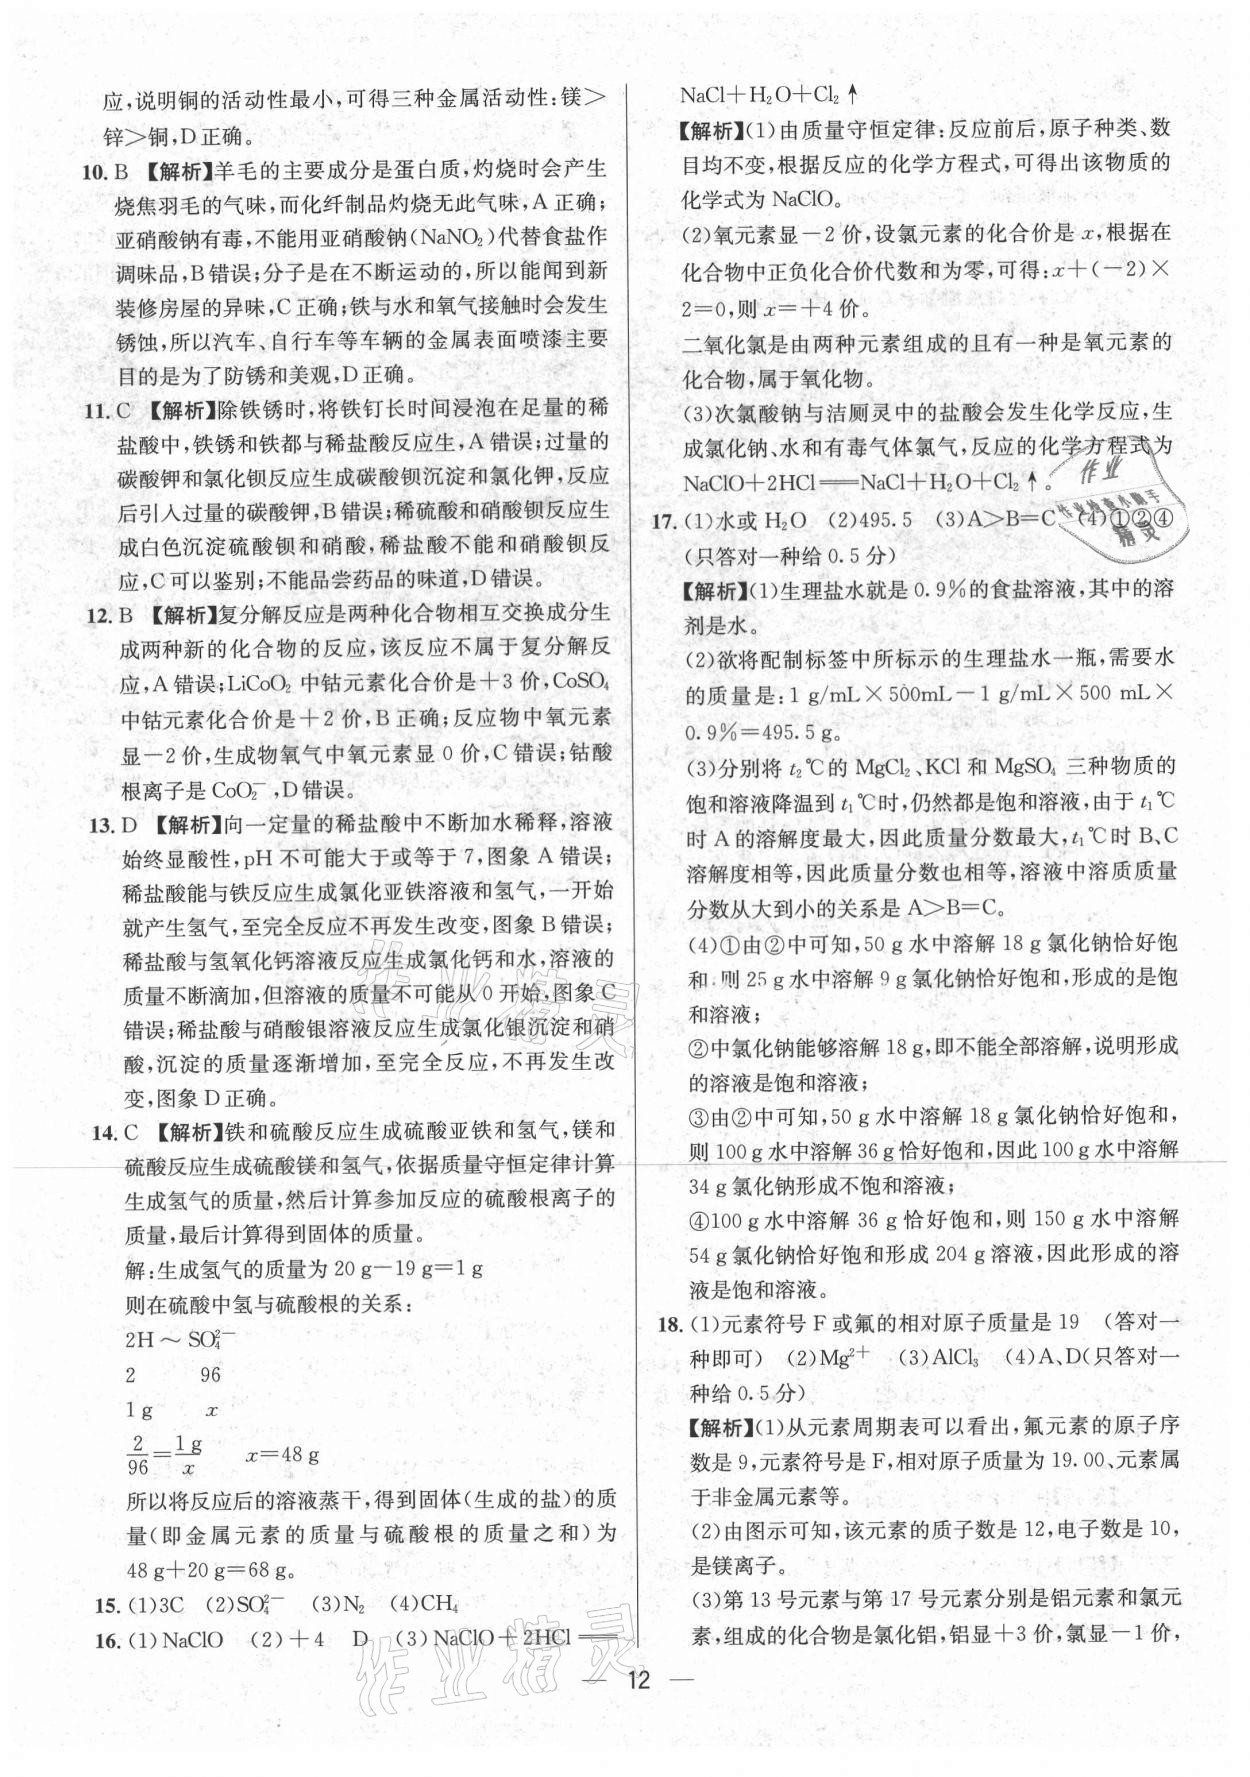 应,说明铜的活动性最小,可得三种金属活动性:镁＞
锌＞铜,D正确。
10. B 【解析】羊毛的主要成分是蛋白质,灼烧时会产生
烧焦羽毛的气味,而化纤制品灼烧无此气味,A正确;
亚硝酸钠有毒,不能用亚硝酸钠(NaNO₂)代替食盐作
调味品,B错误;分子是在不断运动的,所以能闻到新
装修房屋的异味,C正确;铁与水和氧气接触时会发生
锈蚀,所以汽车、自行车等车辆的金属表面喷漆主要
目的是为了防锈和美观,D正确。
11. C 【解析】除铁锈时,将铁钉长时间浸泡在足量的稀
盐酸中,铁锈和铁都与稀盐酸反应生,A错误;过量的
碳酸钾和氯化钡反应生成碳酸钡沉淀和氯化钾,反应
后引入过量的碳酸钾,B错误;稀硫酸和硝酸钡反应生
成白色沉淀硫酸钡和硝酸,稀硝酸不能和硝酸钡反
应,C可以鉴别;不能品尝药品的味道,D错误。
12. B 【解析】复分解反应是两种化合物相互交换成分生
成两种新的化合物的反应,该反应不属于复分解反
应,A错误;LiCoO₂ 中钴元素化合价是＋3价,CoSO₄
中钴元素化合价是＋2价,B正确;反应物中氧元素
显－2价,生成物氧气中氧元素显0价,C错误;钴酸
根离子是CoO₂⁻,D错误。
13. D 【解析】向一定量的稀盐酸中不断加水稀释,溶液
始终显酸性,pH不可能大于或等于7,图象A错误;
稀盐酸能与铁反应生成氯化亚铁溶液和氢气,一开始
就产生氢气,至完全反应不再发生改变,图象B错误;
稀盐酸与氢氧化钙溶液反应生成氯化钙和水,溶液的
质量不断滴加,但溶液的质量不可能从0开始,图象C
错误;稀盐酸与硝酸银溶液反应生成氯化银沉淀和硝
酸,沉淀的质量逐渐增加,至完全反应,不再发生改
变,图象D正确。
14. C 【解析】铁和硫酸反应生成硫酸亚铁和氢气,镁和
硫酸反应生成硫酸镁和氢气,依据质量守恒定律计算
生成氢气的质量,然后计算参加反应的硫酸根离子的
质量,最后计算得到固体的质量。
解:生成氢气的质量为20 g－19 g＝1 g
则在硫酸中氢与硫酸根的关系:
2H ～ SO₄²⁻
2 96
1 g x
2/96＝1 g/x x＝48 g
所以将反应后的溶液蒸干,得到固体(生成的盐)的质
量(即金属元素的质量与硫酸根的质量之和)为
48 g＋20 g＝68 g。
15. (1)3C (2)SO₄²⁻ (3)N₂ (4)CH₄
16. (1)NaClO (2)＋4 D (3)NaClO＋2HCl══
NaCl＋H₂O＋Cl₂↑
【解析】(1)由质量守恒定律:反应前后,原子种类、数
目均不变,根据反应的化学方程式,可得出该物质的
化学式为NaClO。
(2)氧元素显－2价,设氯元素的化合价是x,根据在
化合物中正负化合价代数和为零,可得:x＋(－2)×
2＝0,则x＝＋4价。
二氧化氯是由两种元素组成的且有一种是氧元素的
化合物,属于氧化物。
(3)次氯酸钠与洁厕灵中的盐酸会发生化学反应,生
成氯化钠、水和有毒气体氯气,反应的化学方程式为
NaClO＋2HCl══NaCl＋H₂O＋Cl₂↑。
17. (1)水或H₂O (2)495.5 (3)A＞B＝C (4)①②④
(只答对一种给0.5分)
【解析】(1)生理盐水就是0.9％的食盐溶液,其中的溶
剂是水。
(2)欲将配制标签中所标示的生理盐水一瓶,需要水
的质量是:1 g/mL×500mL－1 g/mL×500 mL×
0.9％＝495.5 g。
(3)分别将t₂℃的MgCl₂、KCl和MgSO₄ 三种物质的
饱和溶液降温到t₁℃时,仍然都是饱和溶液,由于t₁℃
时A的溶解度最大,因此质量分数最大,t₁℃时B、C
溶解度相等,因此质量分数也相等,溶液中溶质质量
分数从大到小的关系是A＞B＝C。
(4)①由②中可知,50 g水中溶解18 g氯化钠恰好饱
和,则25 g水中溶解9 g氯化钠恰好饱和,形成的是饱
和溶液;
②中氯化钠能够溶解18 g,即不能全部溶解,说明形成
的溶液是饱和溶液;
③由②中可知,50 g水中溶解18 g氯化钠恰好饱和,
则100 g水中溶解36 g恰好饱和,因此100 g水中溶解
34 g氯化钠形成不饱和溶液;
④100 g水中溶解36 g恰好饱和,则150 g水中溶解
54 g氯化钠恰好饱和形成204 g溶液,因此形成的溶
液是饱和溶液。
18. (1)元素符号F或氟的相对原子质量是19 (答对一
种即可) (2)Mg²⁺ (3)AlCl₃ (4)A、D(只答对一
种给0.5分)
【解析】(1)从元素周期表可以看出,氟元素的原子序
数是9,元素符号是F,相对原子质量为19.00、元素属
于非金属元素等。
(2)由图示可知,该元素的质子数是12,电子数是10,
是镁离子。
(3)第13号元素与第17号元素分别是铝元素和氯元
素,组成的化合物是氯化铝,铝显＋3价,氯显－1价,
— 12 —
作业
作业检查小助手
精灵
作业精灵
作业精灵